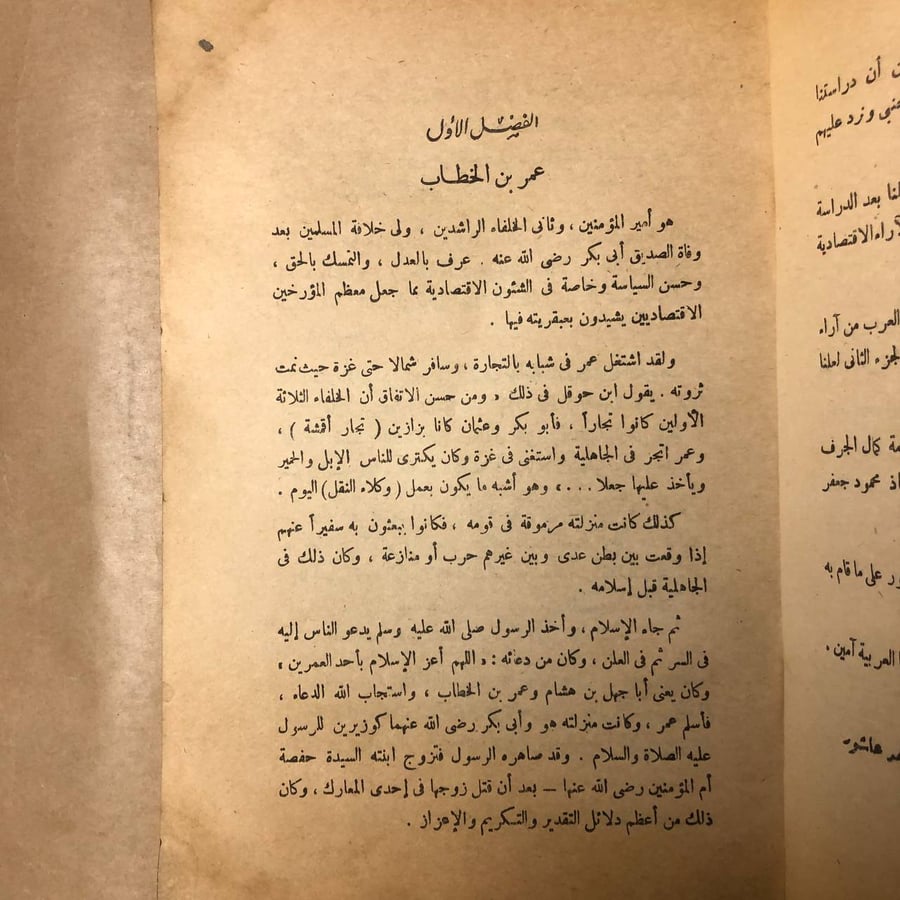 الفصل الأول
عمر بن الخطاب
هو أمير المؤمنين ، وثانى الخلفاء الراشدين ، ولى خلافة المسلمين بعد
وفاة الصديق أبى بكر رضى الله عنه . عرف بالعدل ، والتمسك بالحق ،
وحسن السياسة وخاصة فى الشئون الاقتصادية مما جعل معظم المؤرخين
الاقتصاديين يشيدون بعبقريته فيها .
ولقد اشتغل عمر فى شبابه بالتجارة ، وسافر شمالا حتى غزة حيث نمت
ثروته . يقول ابن حوقل فى ذلك « ومن حسن الاتفاق أن الخلفاء الثلاثة
الأولين كانوا تجاراً ، فأبو بكر وعثمان كانا بزازين ( تجار أقمشة ) ،
وعمر اتجر فى الجاهلية واستغنى فى غزة وكان يكترى للناس الإبل والحمير
ويأخذ عليها جعلا ... » وهو أشبه ما يكون بعمل ( وكلاء النقل ) اليوم .
كذلك كانت منزلته مرموقة فى قومه ، فكانوا يبعثون به سفيراً عنهم
إذا وقعت بين بطن عدى وبين غيرهم حرب أو منازعة ، وكان ذلك فى
الجاهلية قبل إسلامه .
ثم جاء الإسلام ، وأخذ الرسول صلى الله عليه وسلم يدعو الناس إليه
فى السر ثم فى العلن ، وكان من دعائه : « اللهم أعز الإسلام بأحد العمرين »
وكان يعنى أبا جهل بن هشام وعمر بن الخطاب ، واستجاب الله الدعاء ،
فأسلم عمر ، وكانت منزلته هو وأبى بكر رضى الله عنهما كوزيرين للرسول
عليه الصلاة والسلام . وقد صاهره الرسول فتزوج ابنته السيدة حفصة
أم المؤمنين رضى الله عنها — بعد أن قتل زوجها فى إحدى المعارك ، وكان
ذلك من أعظم دلائل التقدير والتكريم والإعزاز .
أن دراستنا
وزد عليهم
بعد الدراسة
الاقتصادية
العرب من آراء
الثانى لعلنا
كمال الجرف
محمود جعفر
على ما قام به
العربية آمين .
عاشور